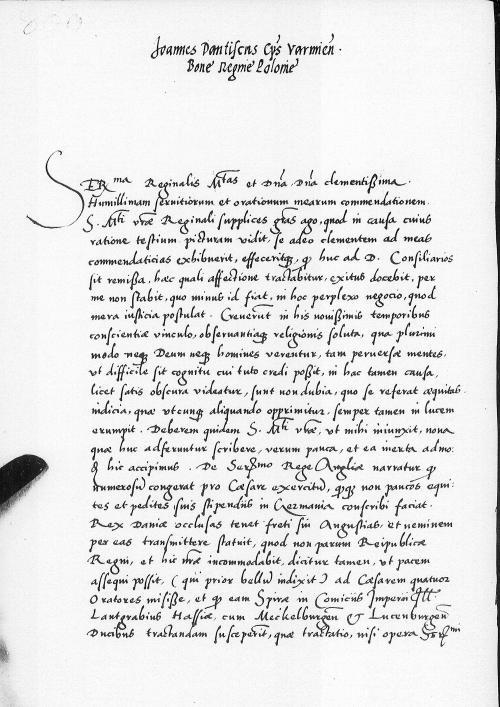 Joannes Dantiscus Eps Varmien.
Bone Regine Polonie
SERma Reginalis Mtas et Dna, Dna clementissima.
Humillimam servitiorum et orationum mearum commendationem.
S. Mti vrae Reginali supplices gras ago, quod in causa cuius
ratione testium picturam vidit, se adeo clementem ad meas
commendaticias exhibuerit, effeceritq, q huc ad D. Consiliarios
sit remissa, haec quali affectione tractabitur, exitus docebit, per
me non stabit, quo minus id fiat, in hoc perplexo negocio, quod
mera iusticia postulat. Creverut in his novissimis temporibus
conscientiae vinculo, observantiaq religionis soluta, qua plurimi
modo neq Deum neq homines verentur, tam perversae mentes,
ut difficile sit cognitu cui tuto credi possit, in hac tamen causa,
licet satis obscura videatur, sunt non dubia, quo se referat aequitas
indicia, quae utcunq aliquando opprimitur, semper tamen in lucem
erumpit. Deberem quidem S. Mti vrae, ut mihi iniunxit, nova
quae huc adferuntur scribere, verum pauca, et ea incerta admo:
hic accipimus. De Sermo Rege Angliae narratur q
numerosu congerat pro Caesare exercitu, q non paucos equi:
tes et pedites suis stipendiis in Germania conscribi faciat.
Rex Daniae occlusas tenet freti sui Angustias, et neminem
per eas transmittere statuit, quod non parum Reipublicae
Regni, et hic nrae incommodabit, dicitur tamen, ut pacem
assequi possit, (qui prior bellu indixit) ad Caesarem quatuor
Oratores misisse, et q eam Spirae in Comiciis Imperii Ill.
Lantgrabius Hassiae, cum Meckelburgen & Lucenburgen
Ducibus tractandam susceperit, quae tractatio, nisi opera Sermi